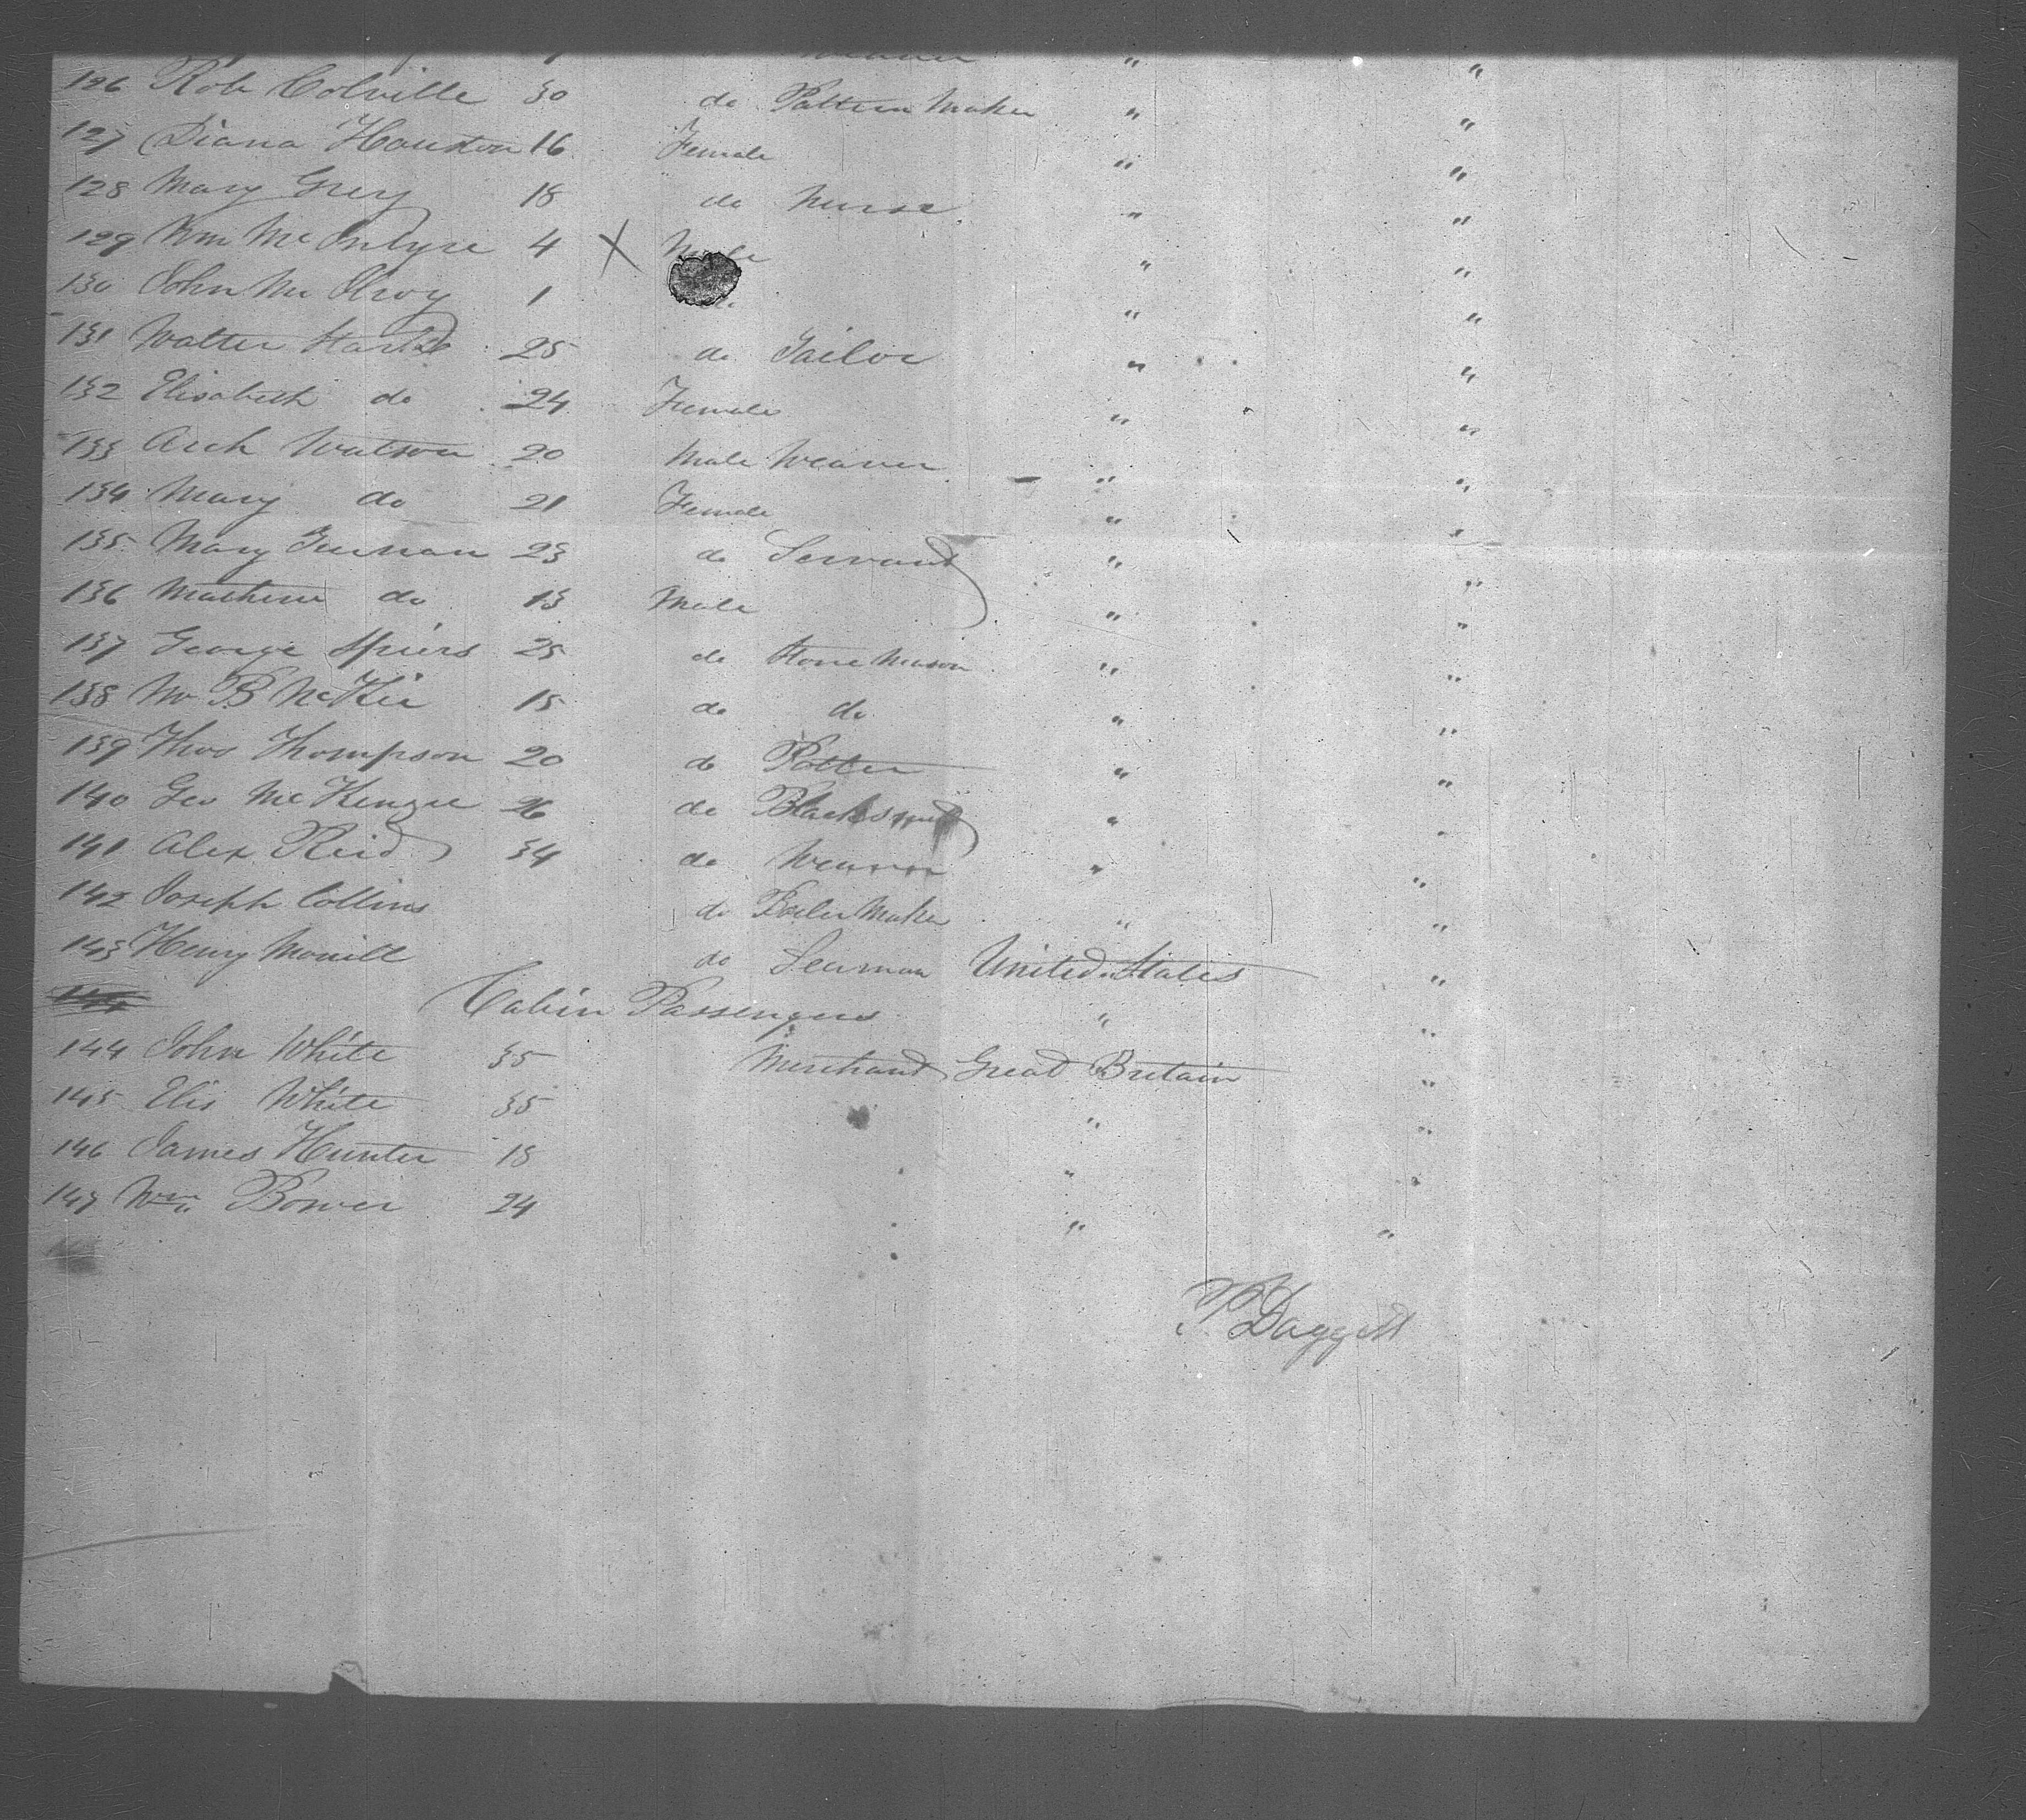 126 Rob Colville 30 do Pattern Maker " "
127 Diana Houston 16 Female " "
128 Mary Grey 18 do Nurse " "
129 Wm McIntyre 4 X Male " "
130 John McIlroy 1 " "
131 Walter 25 do Tailor " "
132 Elisabeth do 24 Female " "
133 Arch Watson 20 Male Weaver " "
134 Mary do 21 Female " "
135 Mary 23 do Servant " "
136 do 13 Male " "
137 George Spiers 25 do Stone Mason " "
138 B McKie 15 do do " "
139 Thos Thompson 20 do Potter " "
140 Geo McKenzie 26 do Blacksmith " "
141 Alex Reid 34 do Weaver " "
142 Joseph Collins do Boiler Maker " "
143 Henry do Seaman United States "
Cabin Passengers " "
144 John White 35 Merchant Great Britain "
145 Elis White 35 " "
146 James Hunter 18 " "
147 Wm Bower 24 " "
Daggett